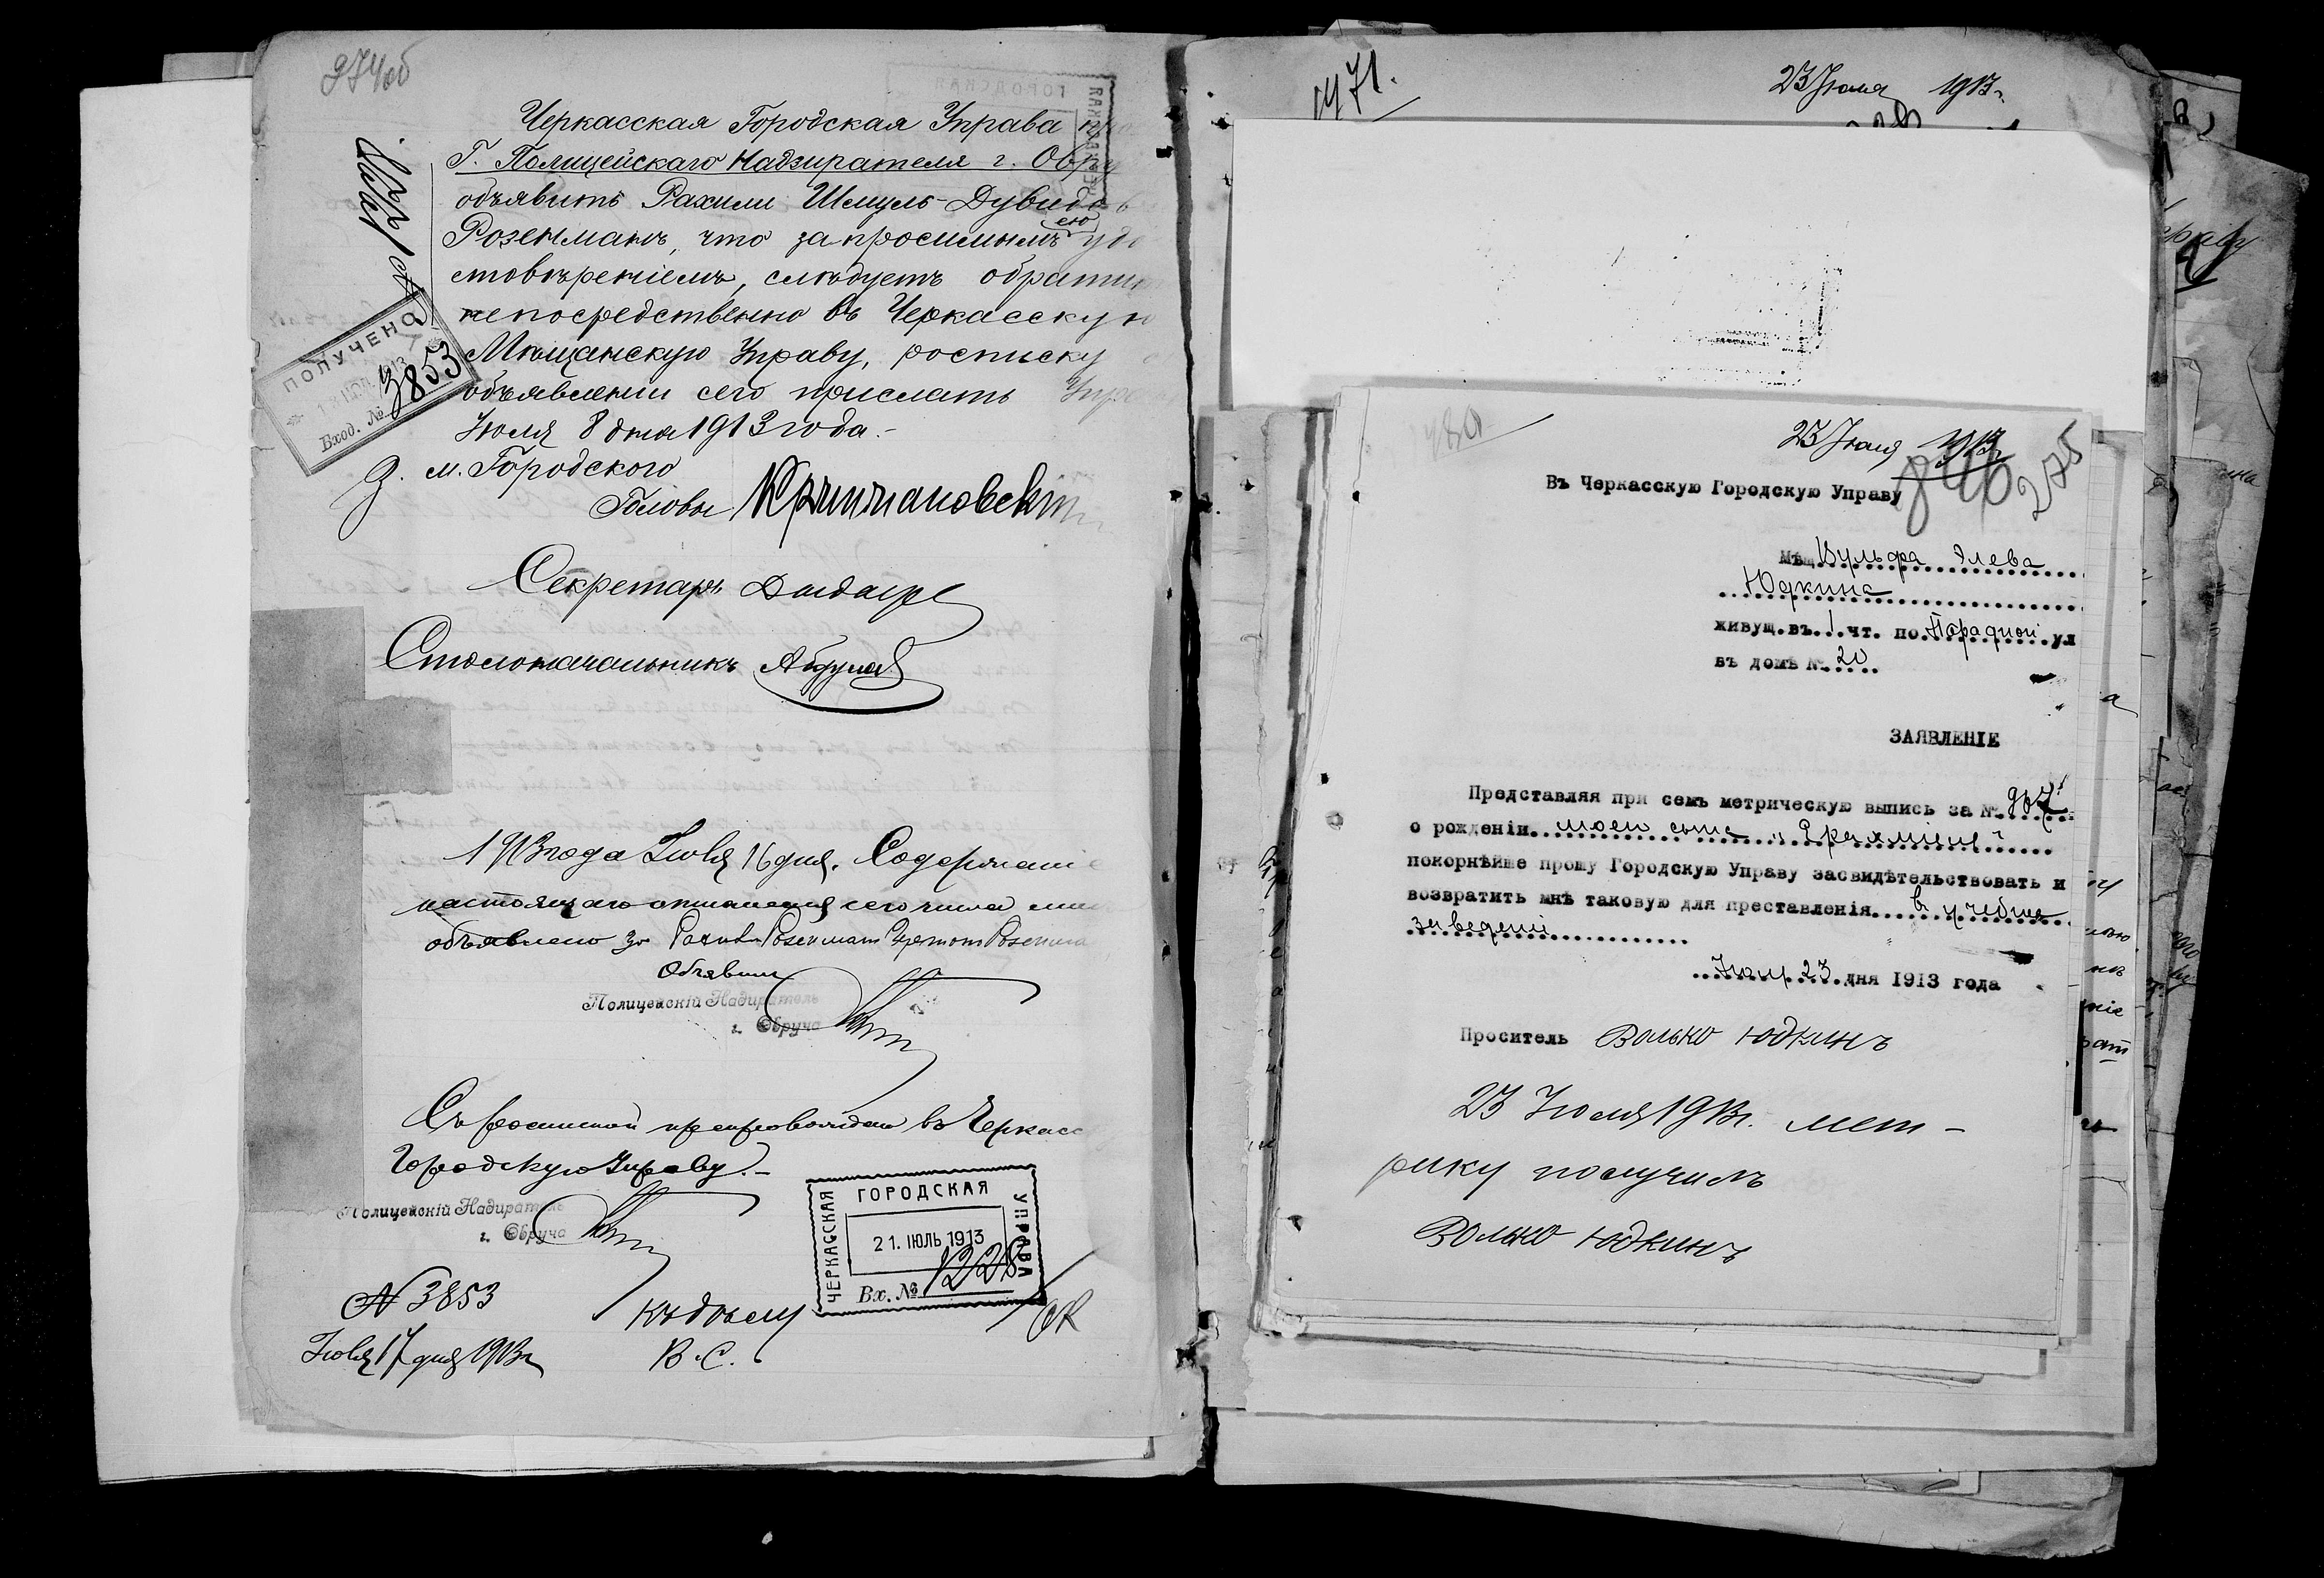 274об
Черкасская Городская Управа
Г. Полицейскаго Надзирателя г. Овру
объявить Рахили Шмуль-Дувидов
Розенманъ, что запросимымъ ею удо
стовѣреніемъ, слѣдуетъ обратит
непосредственно въ Черкасскую
Мѣщанскую Управу, росписку
объявленіи сего прислать Упра
Іюля 8 дня 1913 года.-
И. м. Городского
Головы
Секретарь
Столоначальникъ
ПОЛУЧЕНО
Вход. № 3853
1913 года Іюля 16 дня. Содержаніе
настоящаго отношенія сего числа мнѣ
объявлено
Объявилъ
Полицейскій Надиратель
г. Овруча
Съ роспиской препровождаю въ Черкасс
Городскую Управу.-
Полицейскій Надиратель
г. Овруча
ЧЕРКАССКАЯ ГОРОДСКАЯ УПРАВА
21. ІЮЛЬ 1913
Вх. № 1228
N 3853
Іюля 17 дня 1913 г
Къ дѣлу
В. С.
1471.
23 Іюля 1913 г.
23 Іюля 1913 г
846
275
Въ Черкасскую Городскую Управу
Мѣщ. Вульфа Элева
Юдкина
живущ. въ 1 чт. по Парадной ул
въ домѣ № 20
ЗАЯВЛЕНІЕ
Представляя при семъ метрическую выпись за № 967
о рожденіи моего сына
покорнѣйше прошу Городскую Управу засвидѣтельствовать и
возвратить мнѣ таковую для преставленія в учебное
заведеніе
Іюля 23 дня 1913 года
Проситель Волько Юдкинъ
23 Іюля 1913 г. мет-
рику получилъ
Волько Юдкинъ